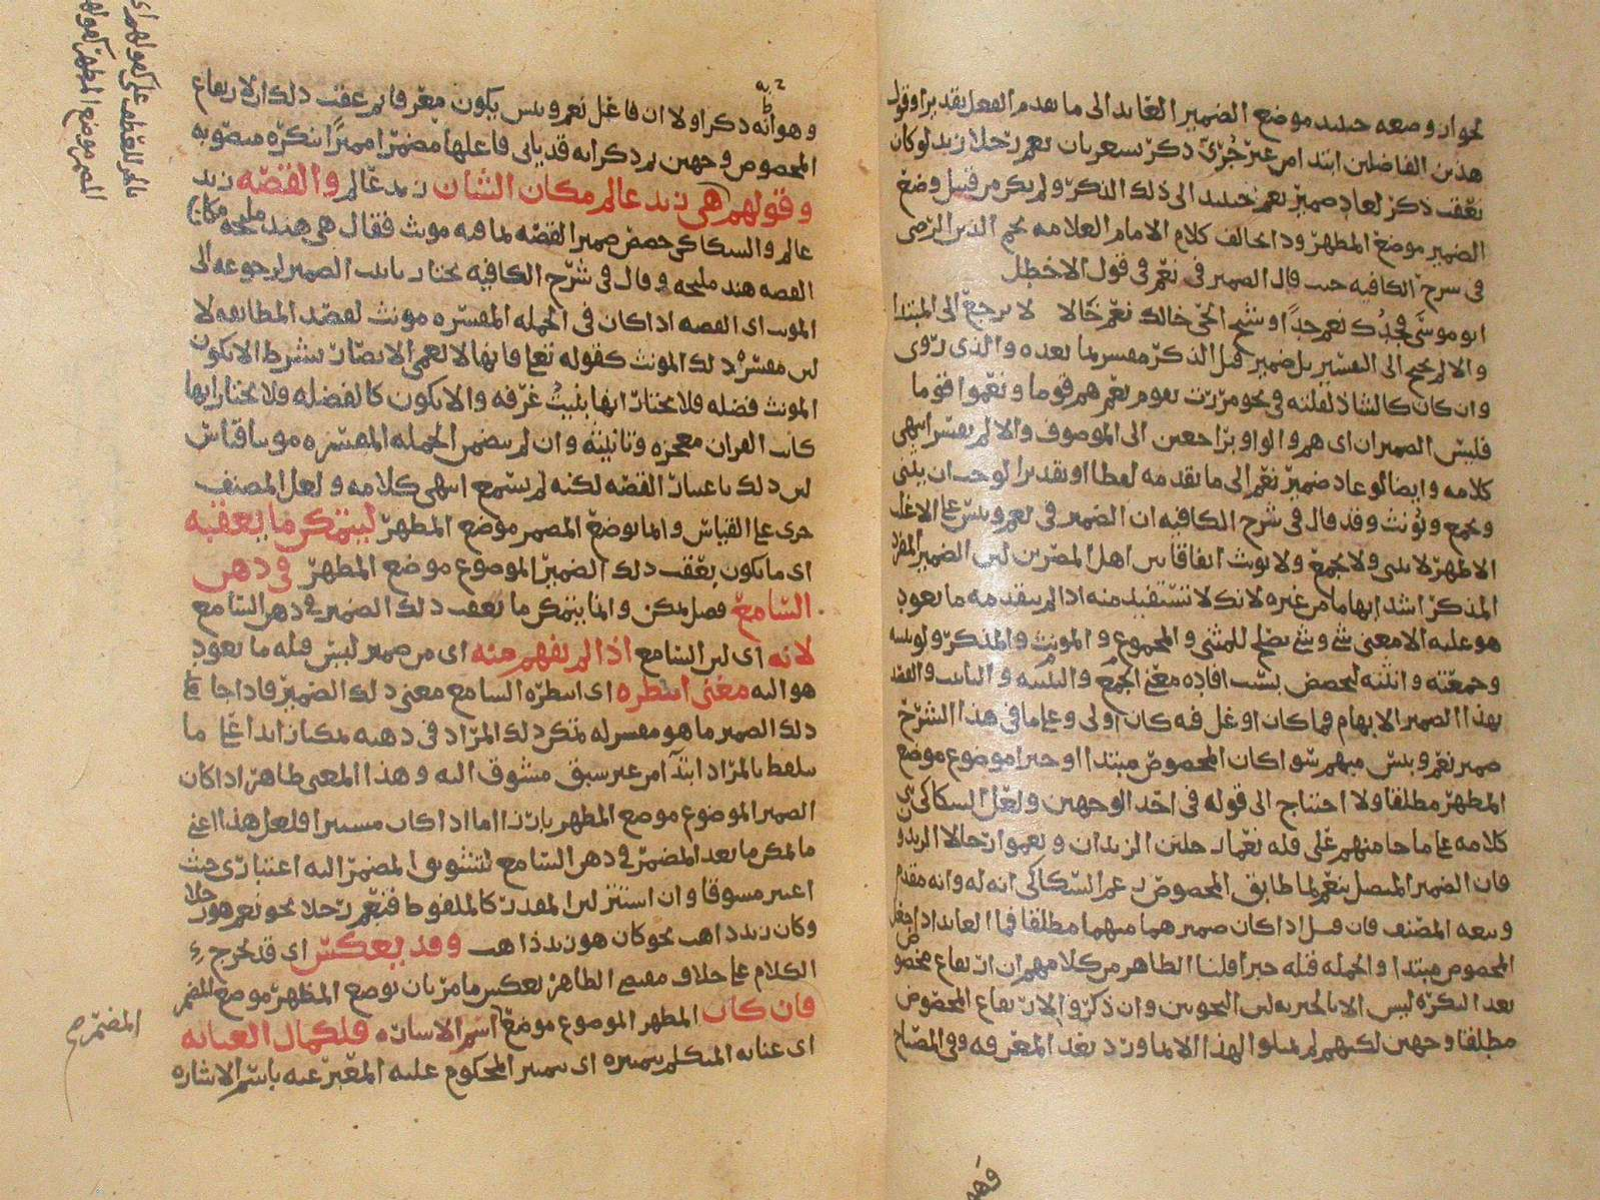 لجواز وضعه حينئذ موضع الضمير العائد الى ما تقدم الفعل تقديرا وقول
هذين الفاضلين ابتدا من غير جرى ذكر يشعر بان نعم رجلا زيد لو كان
تعقب ذكر لعاد ضمير نعم حينئذ الى ذلك الذكر ولم يكن من قبيل وضع
الضمير موضع المظهر وذا يخالف كلام الامام العلامه نجم الدين الرضى
فى شرح الكافيه حيث قال الضمير فى نعم فى قول الاخطل
ابو موسى فجدك نعم جدا وشيخ الحى خالك نعم خالا لا يرجع الى المبتدا
والا لم يحتج الى التفسير بل ضمير قبل الذكر مفسر بما بعده والذى روى
وان كان كالشاذ لقلته فى نحو مررت بقوم نعم هم قوما ونعموا قوما
فليس الضميران اى هم والواو براجعين الى الموصوف والا لم يفسر انتهى
كلامه وايضا لو عاد ضمير نعم الى ما تقدمه لفظا او تقديرا لوجب ان يثنى
ويجمع ويؤنث وقد قال فى شرح الكافيه ان الضمير فى نعم وبئس على الاغلب
الاظهر لا يثنى ولا يجمع ولا يونث اتفاقا بين اهل المصرين لان الضمير المفرد
المذكر اشد ابهاما من غيره لانك لا تستفيد منه اذا لم يتقدمه ما يعود
هو عليه الا معنى شئ وشئ يصلح للمثنى والمجموع والمونث والمذكر ولو ثنيته
وجمعته وانثته لتخصص بسبب افاده معنى الجمع والتثنيه والتانيث والقصد
بهذا الضمير الابهام فما كان اوغل فيه كان اولى وعلى ما فى هذا الشرح
ضمير نعم وبئس مبهم سوا كان المخصوص مبتدا او خبرا موضوع موضع
المظهر مطلقا ولا احتاج الى قوله فى احد الوجهين ولعل السكاكى بنى
كلامه على ما جا منهم على قله نعما رجلين الزيدان ونعموا رجالا الزيدون
فان الضمير المتصل بنعم لما طابق المخصوص زعم السكاكى انه له وانه مقدم
وتبعه المصنف فان قيل اذا كان ضميرهما مبهما مطلقا فما العائد اذا جعل
المخصوص مبتدا والجمله قبله خبرا قلنا الظاهر من كلامهم ان ارتفاع مخصوص
بعد النكره ليس الا بالخبريه لان النحويين وان ذكروا لارتفاع المخصوص
مطلقا وجهين لكنهم لم يمثلوا لهذا الا بما ورد بعد المعرفه وفى المصباح
وهو انه ذكر اولا ان فاعل نعم وبئس يكون معرفا ثم عقب ذلك ان لارتفاع
المخصوص وجهين ثم ذكر انه قد ياتى فاعلها مضمرا مميزا بنكره منصوبه
وقولهم هى زيد عالم مكان الشان زيد عالم والقصه زيد
عالم والسكاكى خصص ضمير القصه بما فيه مونث فقال هى هند مليحه مكان
القصه هند مليحه وقال فى شرح الكافيه يختار تانيث الضمير لرجوعه الى
المونث اى القصه اذا كان فى الجمله المفسره مونث لقصد المطابقه لا
لان مفسره ذلك المونث كقوله تعالى فانها لا تعمى الابصار بشرط الا يكون
المونث فضله فلا يختار انها بنيت غرفه والا يكون كالفضله فلا يختار انها
كان القران معجزه وتانيثه وان لم يتضمن الجمله المفسره مونثا قياس
لان ذلك باعتبار القصه لكنه لم يسمع انتهى كلامه ولعل المصنف
جرى على القياس وانما يوضع المضمر موضع المظهر ليتمكن ما يعقبه
اى ما يكون يعقب ذلك الضمير الموضوع موضع المظهر فى ذهن
السامع فضل تمكن وانما يتمكن ما يعقب ذلك الضمير فى ذهن السامع
لانه اى لان السامع اذا لم يفهم منه اى من ضمير ليس قبله ما يعود
هو اليه معنى انتظره اى انتظره السامع معنى ذلك الضمير فاذا جا
ذلك الضمير ما هو مفسر له تمكن ذلك المراد فى ذهنه تمكنا زايدا على ما
تلفظ بالمراد ابتدآ من غير سبق مشوق اليه وهذا المعنى ظاهر اذا كان
الضمير الموضوع موضع المظهر بارزا اما اذا كان مستترا فلعل هذا اعنى
ما تمكن ما بعد المضمر فى ذهن السامع لتشوق المضمر اليه اعتبارى حيث
اعتبر مسوقا وان استتر لان المقدر كالملفوظ فنعم رجلا نحو نعم هو رجلا
وكان زيد ذاهب نحو كان هو زيد ذاهب وقد يعكس اى قد يخرج
الكلام على خلاف مقتضى الظاهر بعكس ما مر بان يوضع المظهر موضع المضمر
فان كان المظهر الموضوع موضع اسم الاشاره فلكمال العنايه
اى عنايه المتكلم بتميزه اى تميز المحكوم عليه المعبر عنه باسم الاشاره
المضمر صح